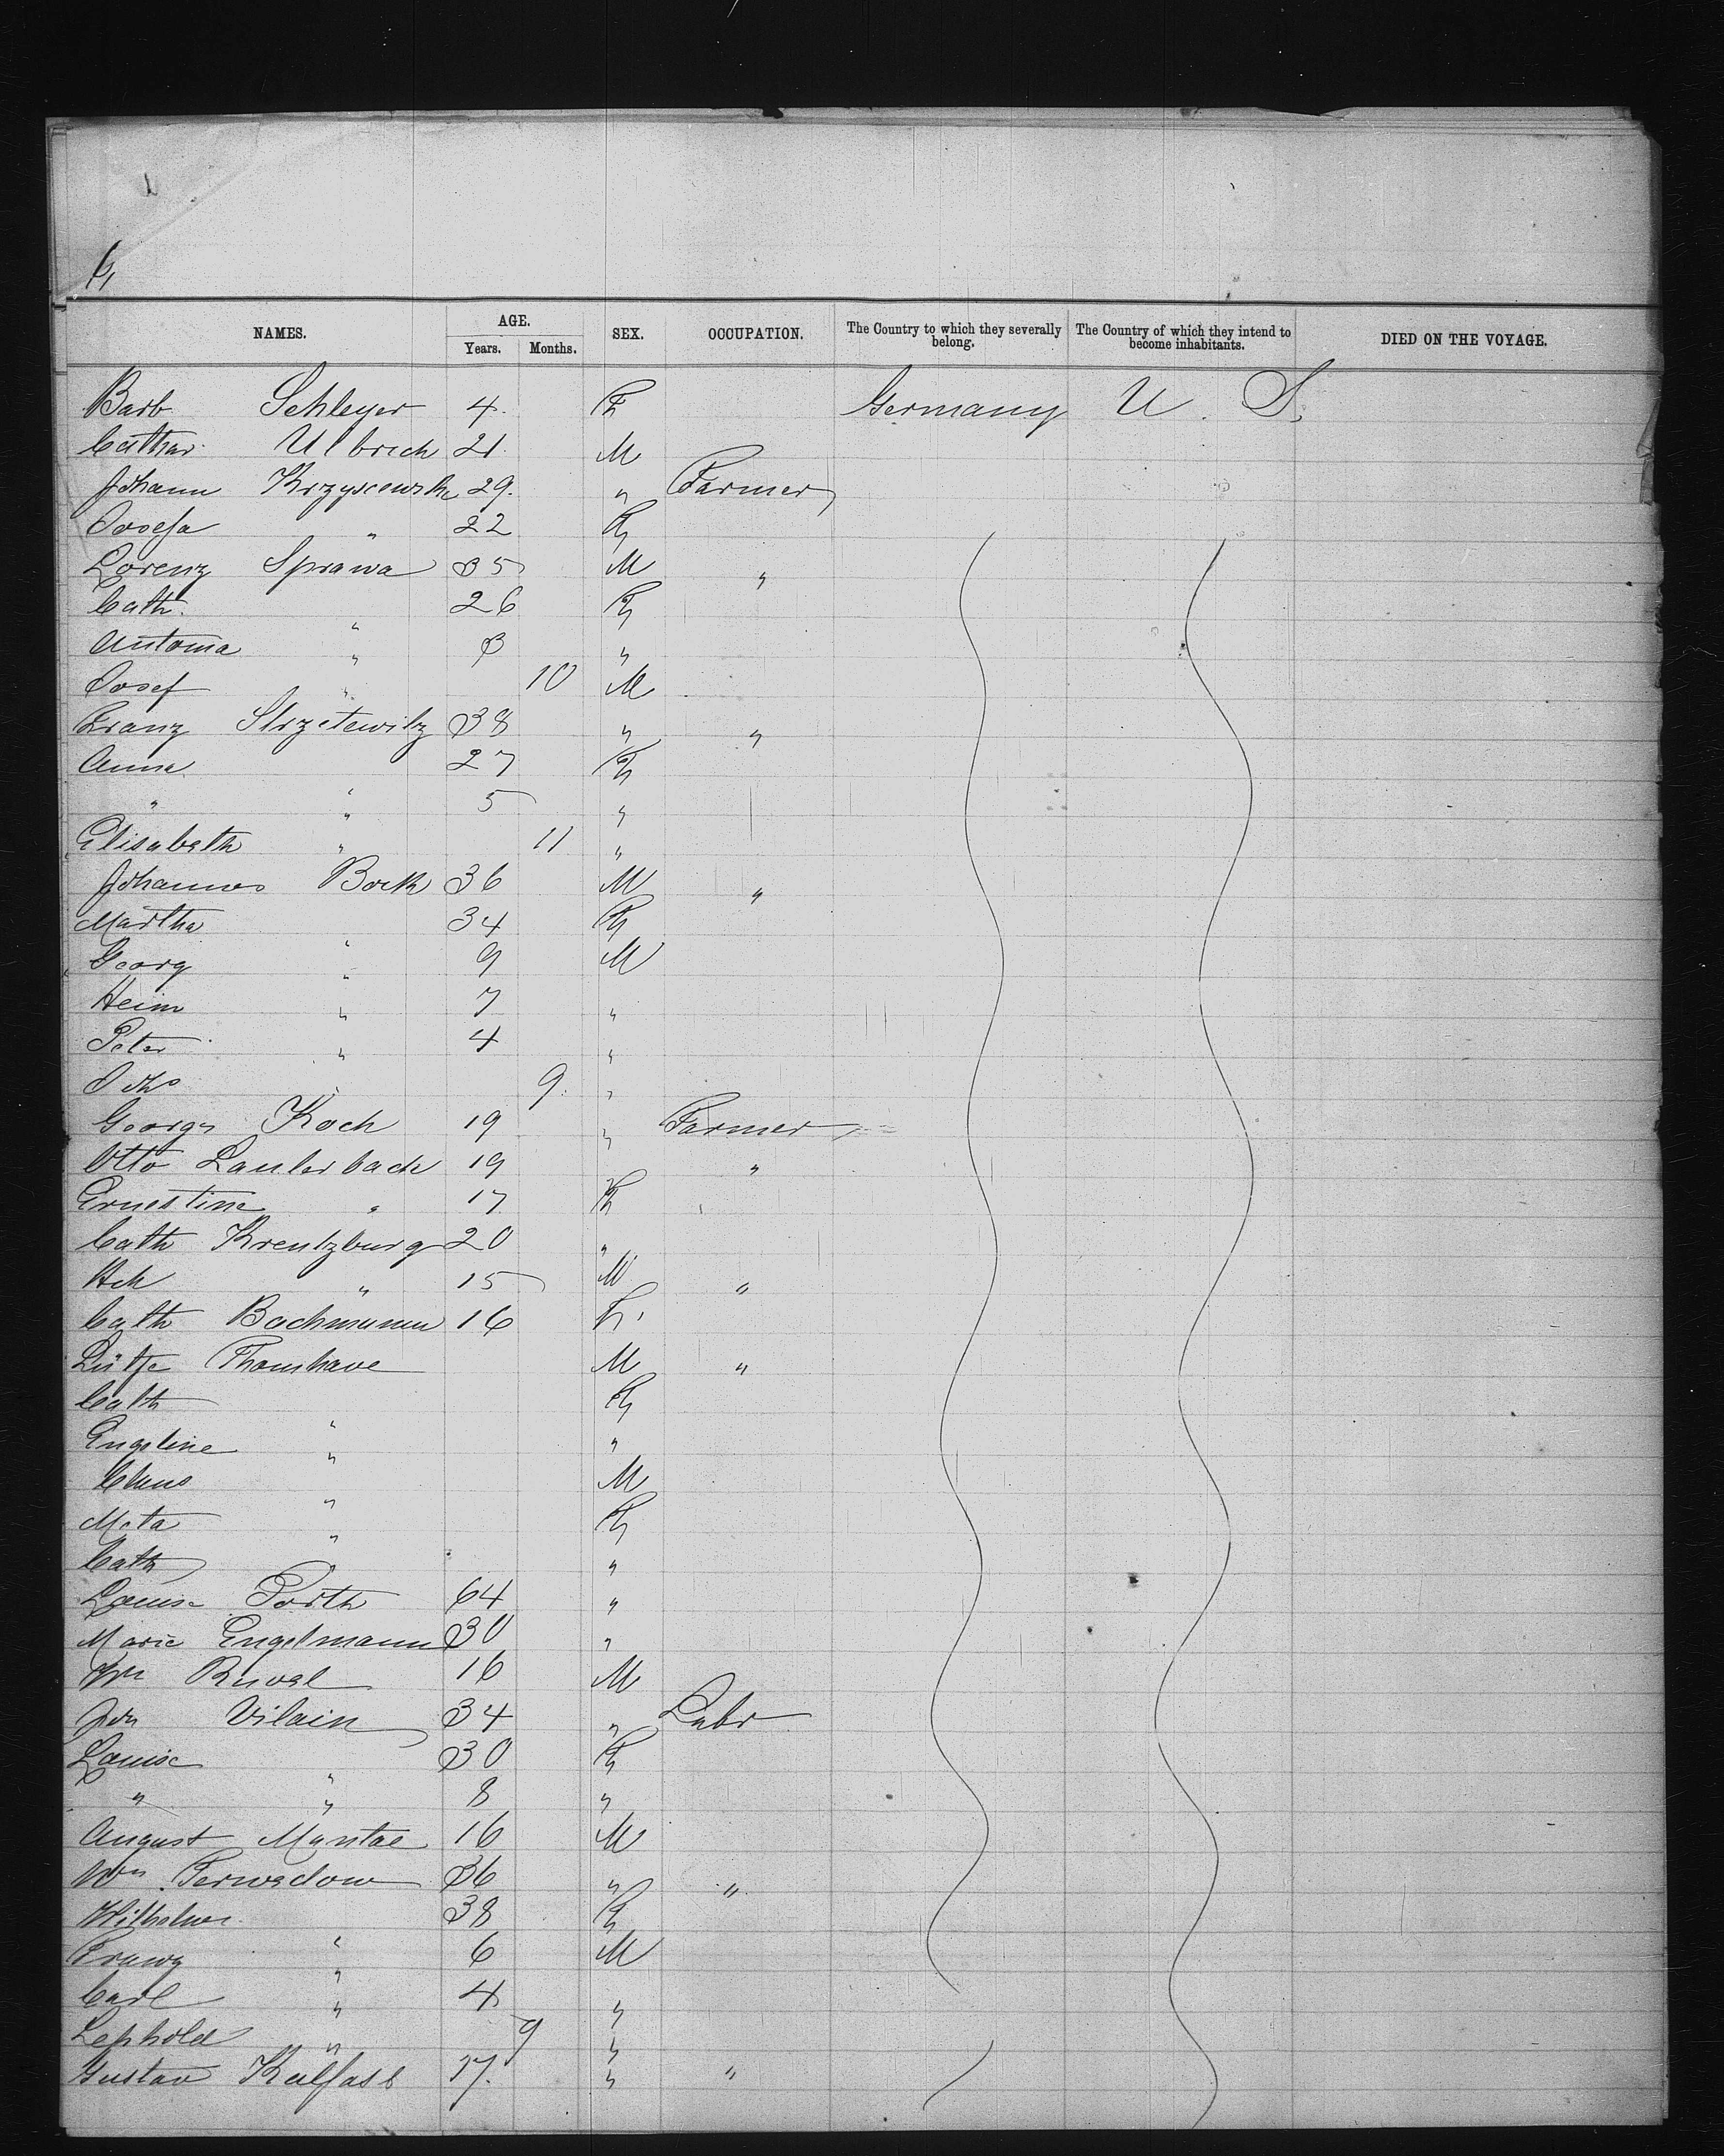 NAMES. AGE. SEX. OCCUPATION. The Country to which they severally belong. The Country of which they intend to become inhabitants. DIED ON THE VOYAGE.
Years. Months.
Barb Schleyer 4. F Germany U. S.
Cathar. Ulbrich 21. M
Johann 29. " Farmer
Josefa " 22 F
Lorenz Sprawa 35 M "
Cath. " 26 F
Antonia " 3 "
Josef " 10 M
Franz 38 " "
Anna " 27 F
" " 5 "
Elisabeth " 11 "
Johannes Bock 36 M "
Martha " 34 F
Georg " 9 M
Hein " 7 "
Peter " 4 "
Johs " 9. "
Georg Koch 19 " Farmer
Otto Lauterbach 19 "
Ernestine " 17 F
Cath Kreutzburg 20 "
Hch " 15 M "
Cath Bachmann 16 F.
Lütje M "
Cath " F
Engeline " "
Claus " M
Meta " F
Cath "
Louise Porth 64 "
Marie Engelmann 30 "
Wm 16 M
Joh Vilain 34 " Labr
Louise " 30 F
" " 8 "
August Mantae 16 M
Wm 36 " "
Wilhelmi 38 F
Franz " 6 M
Carl " 4 "
Lephold " 9 "
Gustav Kalfass 17. " "